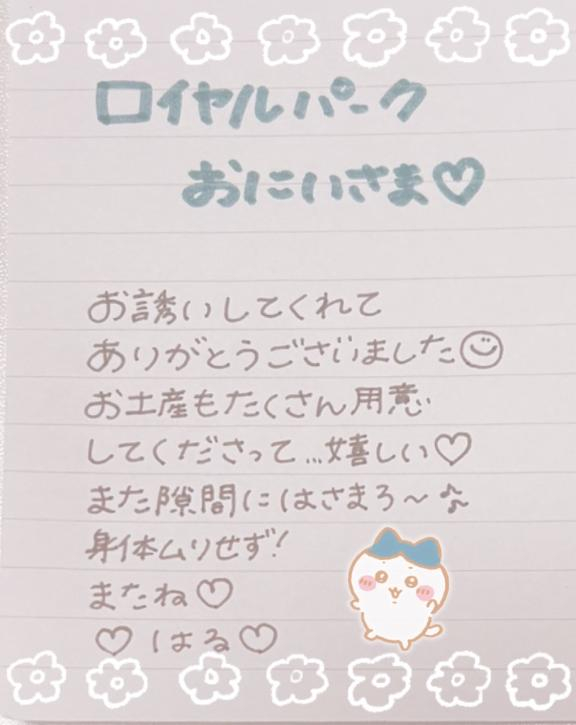 ロイヤルパーク
おにいさま♡
お誘いしてくれて
ありがとうございました☺
お土産もたくさん用意
してくださって…嬉しい♡
また隙間にはさまろ〜♪
身体ムリせず!
またね♡
♡はる♡